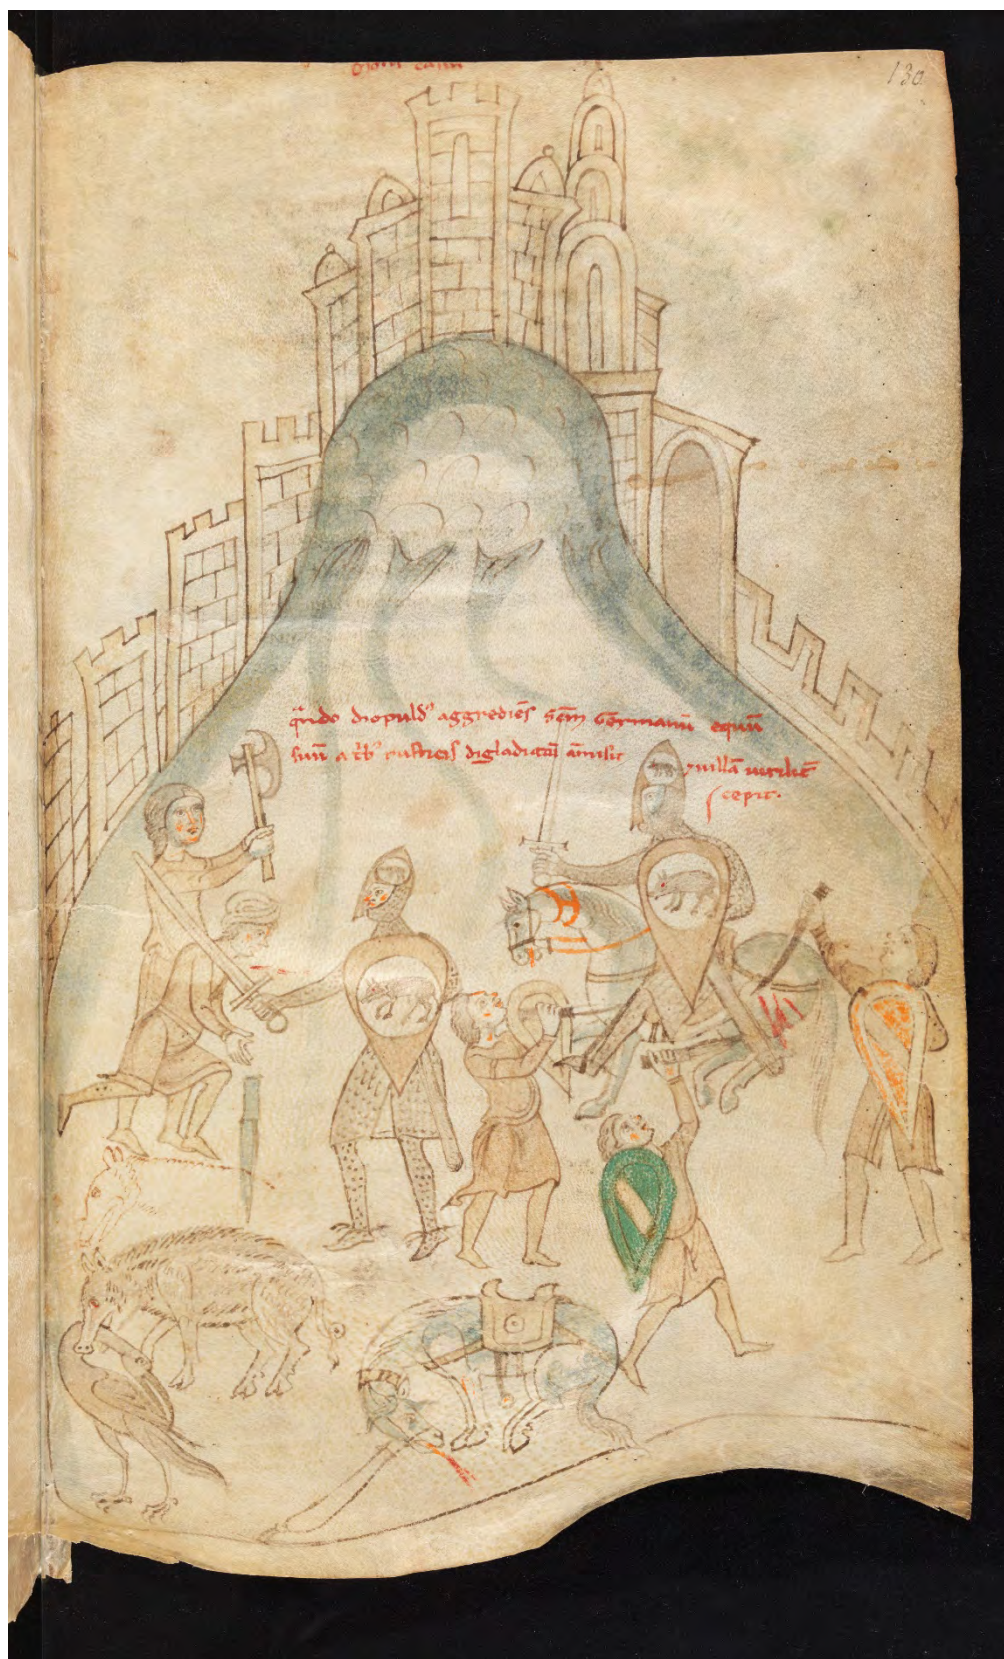 130
q̄ndo diopuld᷒ aggrediēs sc̄m Germanū equū
suū a rusticis digladiatū āmisit
⁊ villā viriliť
cepit.